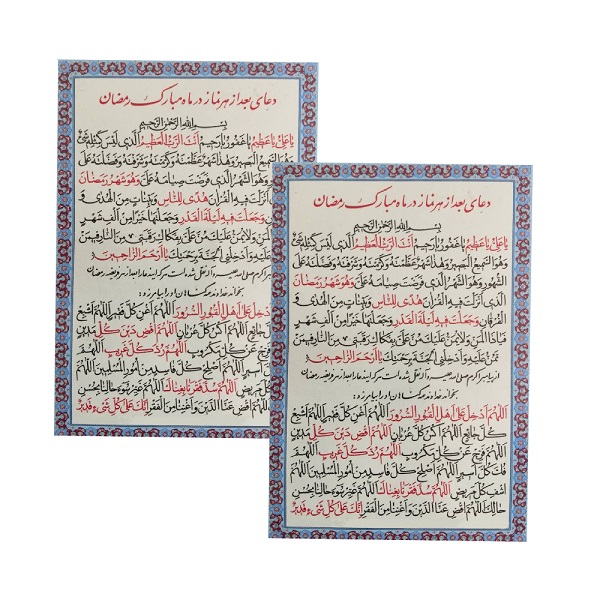 دعای بعد از هر نماز در ماه مبارک رمضان
بسم الله الرحمن الرحیم
یا علی یا عظیم یا غفور یا رحیم انت الرب العظیم الذی لیس کمثله
وهو السمیع البصیر وهذا شهر عظمته وکرمته وشرفته وفضلته علی
وهو الشهر الذی فرضت صیامه علی وهو شهر رمضان
انزلت فیه القرآن هدی للناس وبینات من الهدی و
وجعلت فیه لیلة القدر وجعلتها خیرا من الف شهر
المن ولا یمن علیک من علی بفکاک رقبتی من النار فیمن
علیه وادخلنی الجنة برحمتک یا ارحم الراحمین
اکرم صلی الله علیه و آله نقل شده است هر که این دعا را بعد از هر فریضه رمضان
بخواند خداوند گناهان او را بیامرزد:
ادخل علی اهل القبور السرور اللهم اغن کل فقیر اللهم اشبع
کل جائع اللهم اکس کل عریان اللهم اقض دین کل مدین
اللهم فرج عن کل مکروب اللهم رد کل غریب اللهم
فک کل اسیر اللهم اصلح کل فاسد من امور المسلمین اللهم
اشف کل مریض اللهم سد فقرنا بغناک اللهم غیر سوء حالنا بحسن
حالک اللهم اقض عنا الدین واغننا من الفقر انک علی کل شیء قدیر
دعای بعد از هر نماز در ماه مبارک رمضان
بسم الله الرحمن الرحیم
یا علی یا عظیم یا غفور یا رحیم انت الرب العظیم الذی لیس کمثله شیء
وهو السمیع البصیر وهذا شهر عظمته وکرمته وشرفته وفضلته علی
الشهور وهو الشهر الذی فرضت صیامه علی وهو شهر رمضان
الذی انزلت فیه القرآن هدی للناس وبینات من الهدی و
الفرقان وجعلت فیه لیلة القدر وجعلتها خیرا من الف شهر
فیا ذا المن ولا یمن علیک من علی بفکاک رقبتی من النار فیمن
تمن علیه وادخلنی الجنة برحمتک یا ارحم الراحمین
از پیامبر اکرم صلی الله علیه و آله نقل شده است هر که این دعا را بعد از هر فریضه رمضان
بخواند خداوند گناهان او را بیامرزد:
اللهم ادخل علی اهل القبور السرور اللهم اغن کل فقیر اللهم اشبع
کل جائع اللهم اکس کل عریان اللهم اقض دین کل مدین
اللهم فرج عن کل مکروب اللهم رد کل غریب اللهم
فک کل اسیر اللهم اصلح کل فاسد من امور المسلمین اللهم
اشف کل مریض اللهم سد فقرنا بغناک اللهم غیر سوء حالنا بحسن
حالک اللهم اقض عنا الدین واغننا من الفقر انک علی کل شیء قدیر